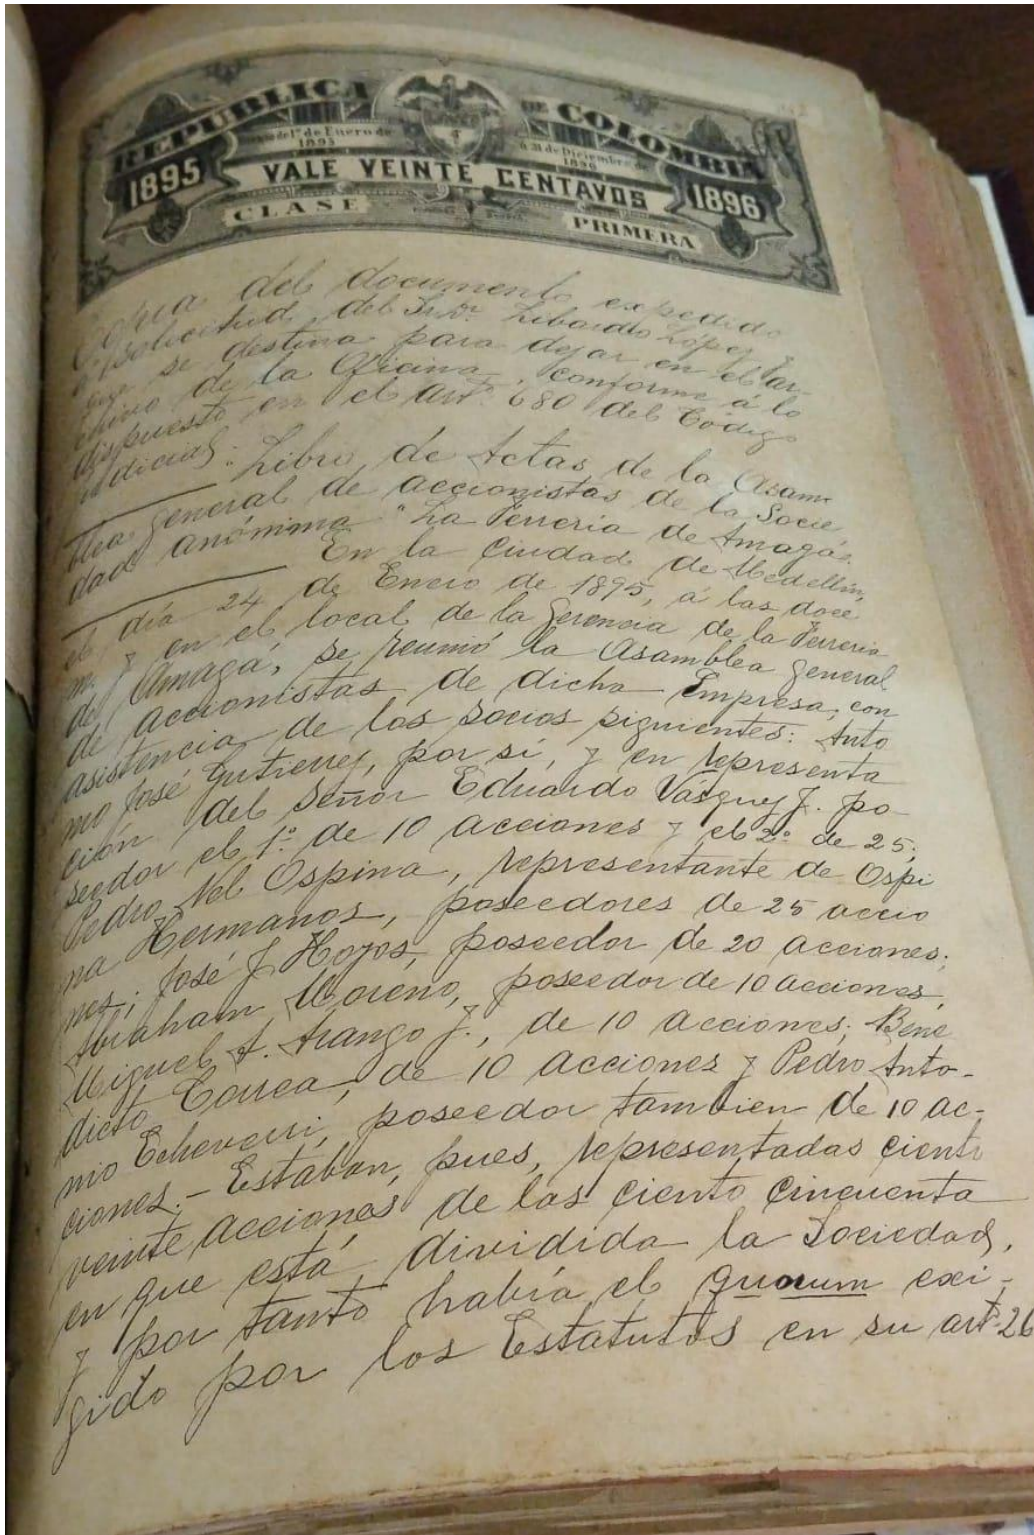 REPUBLICA DE COLOMBIA
1895
1º de Enero de 1895
á 31 de Diciembre de 1896
1896
VALE VEINTE CENTAVOS
CLASE PRIMERA
Copia del documento expedido
á solicitud del Sr. Dr. Libardo López y
que se destina para dejar en el ar
chivo de la Oficina, conforme á lo
dispuesto en el Art. 680 del Código
judicial: Libro de Actas de la Asam
blea general de accionistas de la Socie
dad anónima "La Ferreria de Amagá".
En la ciudad de Medellín,
el día 24 de Enero de 1895, á las doce
m. y en el local de la Gerencia de la Ferreria
de Amagá, se reunió la Asamblea general
de accionistas de dicha Empresa, con
asistencia de los socios siguientes: Anto
nio José Gutierrez, por sí, y en representa
ción del señor Eduardo Vásquez J. po-
seedor el 1º de 10 acciones y el 2º de 25;
Pedro Nel Ospina, representante de Ospi
na Hermanos, poseedores de 25 accio
nes; José J. Hoyos, poseedor de 20 acciones;
Abraham Moreno, poseedor de 10 acciones,
Miguel A. Arango J., de 10 acciones; Bene
dicto Correa, de 10 acciones y Pedro Anto-
nio Echeverri, poseedor tambien de 10 ac-
ciones.- Estaban, pues, representadas ciento
veinte acciones de las ciento cincuenta
en que está dividida la Sociedad,
y por tanto había el quorum exi-
gido por los Estatutos en su art. 26